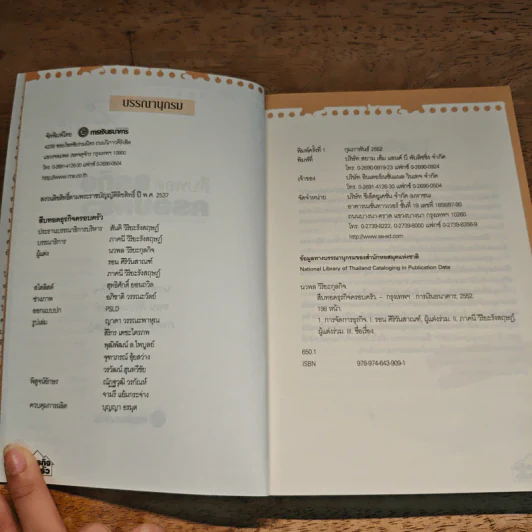 บรรณานุกรม
จัดพิมพ์โดย การเงินธนาคาร
แขวงจอมพล เขตจตุจักร กรุงเทพฯ 10900
โทร. 0-2691-4126-30 แฟกซ์ 0-2690-0504
สงวนลิขสิทธิ์ตามพระราชบัญญัติลิขสิทธิ์ ปี พ.ศ. 2537
สืบทอดธุรกิจครอบครัว
ประธานบรรณาธิการบริหาร สันติ วิริยะรังสฤษฎ์
บรรณาธิการ ภาคนี วิริยะรังสฤษฎ์
ผู้แต่ง นวพล วิริยะกุลกิจ
รชน ศิริวันสาณฑ์
ภาคนี วิริยะรังสฤษฎ์
สไตลิสต์ สุทธิศักดิ์
ช่างภาพ อภิชาติ วรรณะวัลย์
ออกแบบปก PSLD
รูปเล่ม ญาดา วรรณะพาหุณ
ศิริกร เดชะไตรภพ
พุฒิพัฒน์ อ.ไพบูลย์
จุฑาภรณ์
วรวัฒน์ สุนทวีชัย
พิสูจน์อักษร ณัฏฐวุฒิ วรกัณห์
จามรี แย้มกระจ่าง
ควบคุมการผลิต บุญญา อรนุต
พิมพ์ครั้งที่ 1 กุมภาพันธ์ 2552
พิมพ์ที่ บริษัท สยาม เอ็ม แอนด์ บี พับลิชชิ่ง จำกัด
โทร. 0-2690-0819-23 แฟกซ์ 0-2690-0904
เจ้าของ บริษัท อินเตอร์เนชั่นแนล ไวเตอ จำกัด
โทร. 0-2691-4126-30 แฟกซ์ 0-2690-0504
จัดจำหน่าย บริษัท ซีเอ็ดยูเคชั่น จำกัด (มหาชน)
ถนนบางนา-ตราด แขวงบางนา กรุงเทพฯ 10260
http://www.se-ed.com
ข้อมูลทางบรรณานุกรมของสำนักหอสมุดแห่งชาติ
National Library of Thailand Cataloging in Publication Data
นวพล วิริยะกุลกิจ.
สืบทอดธุรกิจครอบครัว.-- กรุงเทพฯ : การเงินธนาคาร, 2552.
156 หน้า.
1. การจัดการธุรกิจ. I. รชน ศิริวันสาณฑ์, ผู้แต่งร่วม. II. ภาคนี วิริยะรังสฤษฎ์,
ผู้แต่งร่วม. III. ชื่อเรื่อง.
650.1
ISBN 978-974-643-909-1